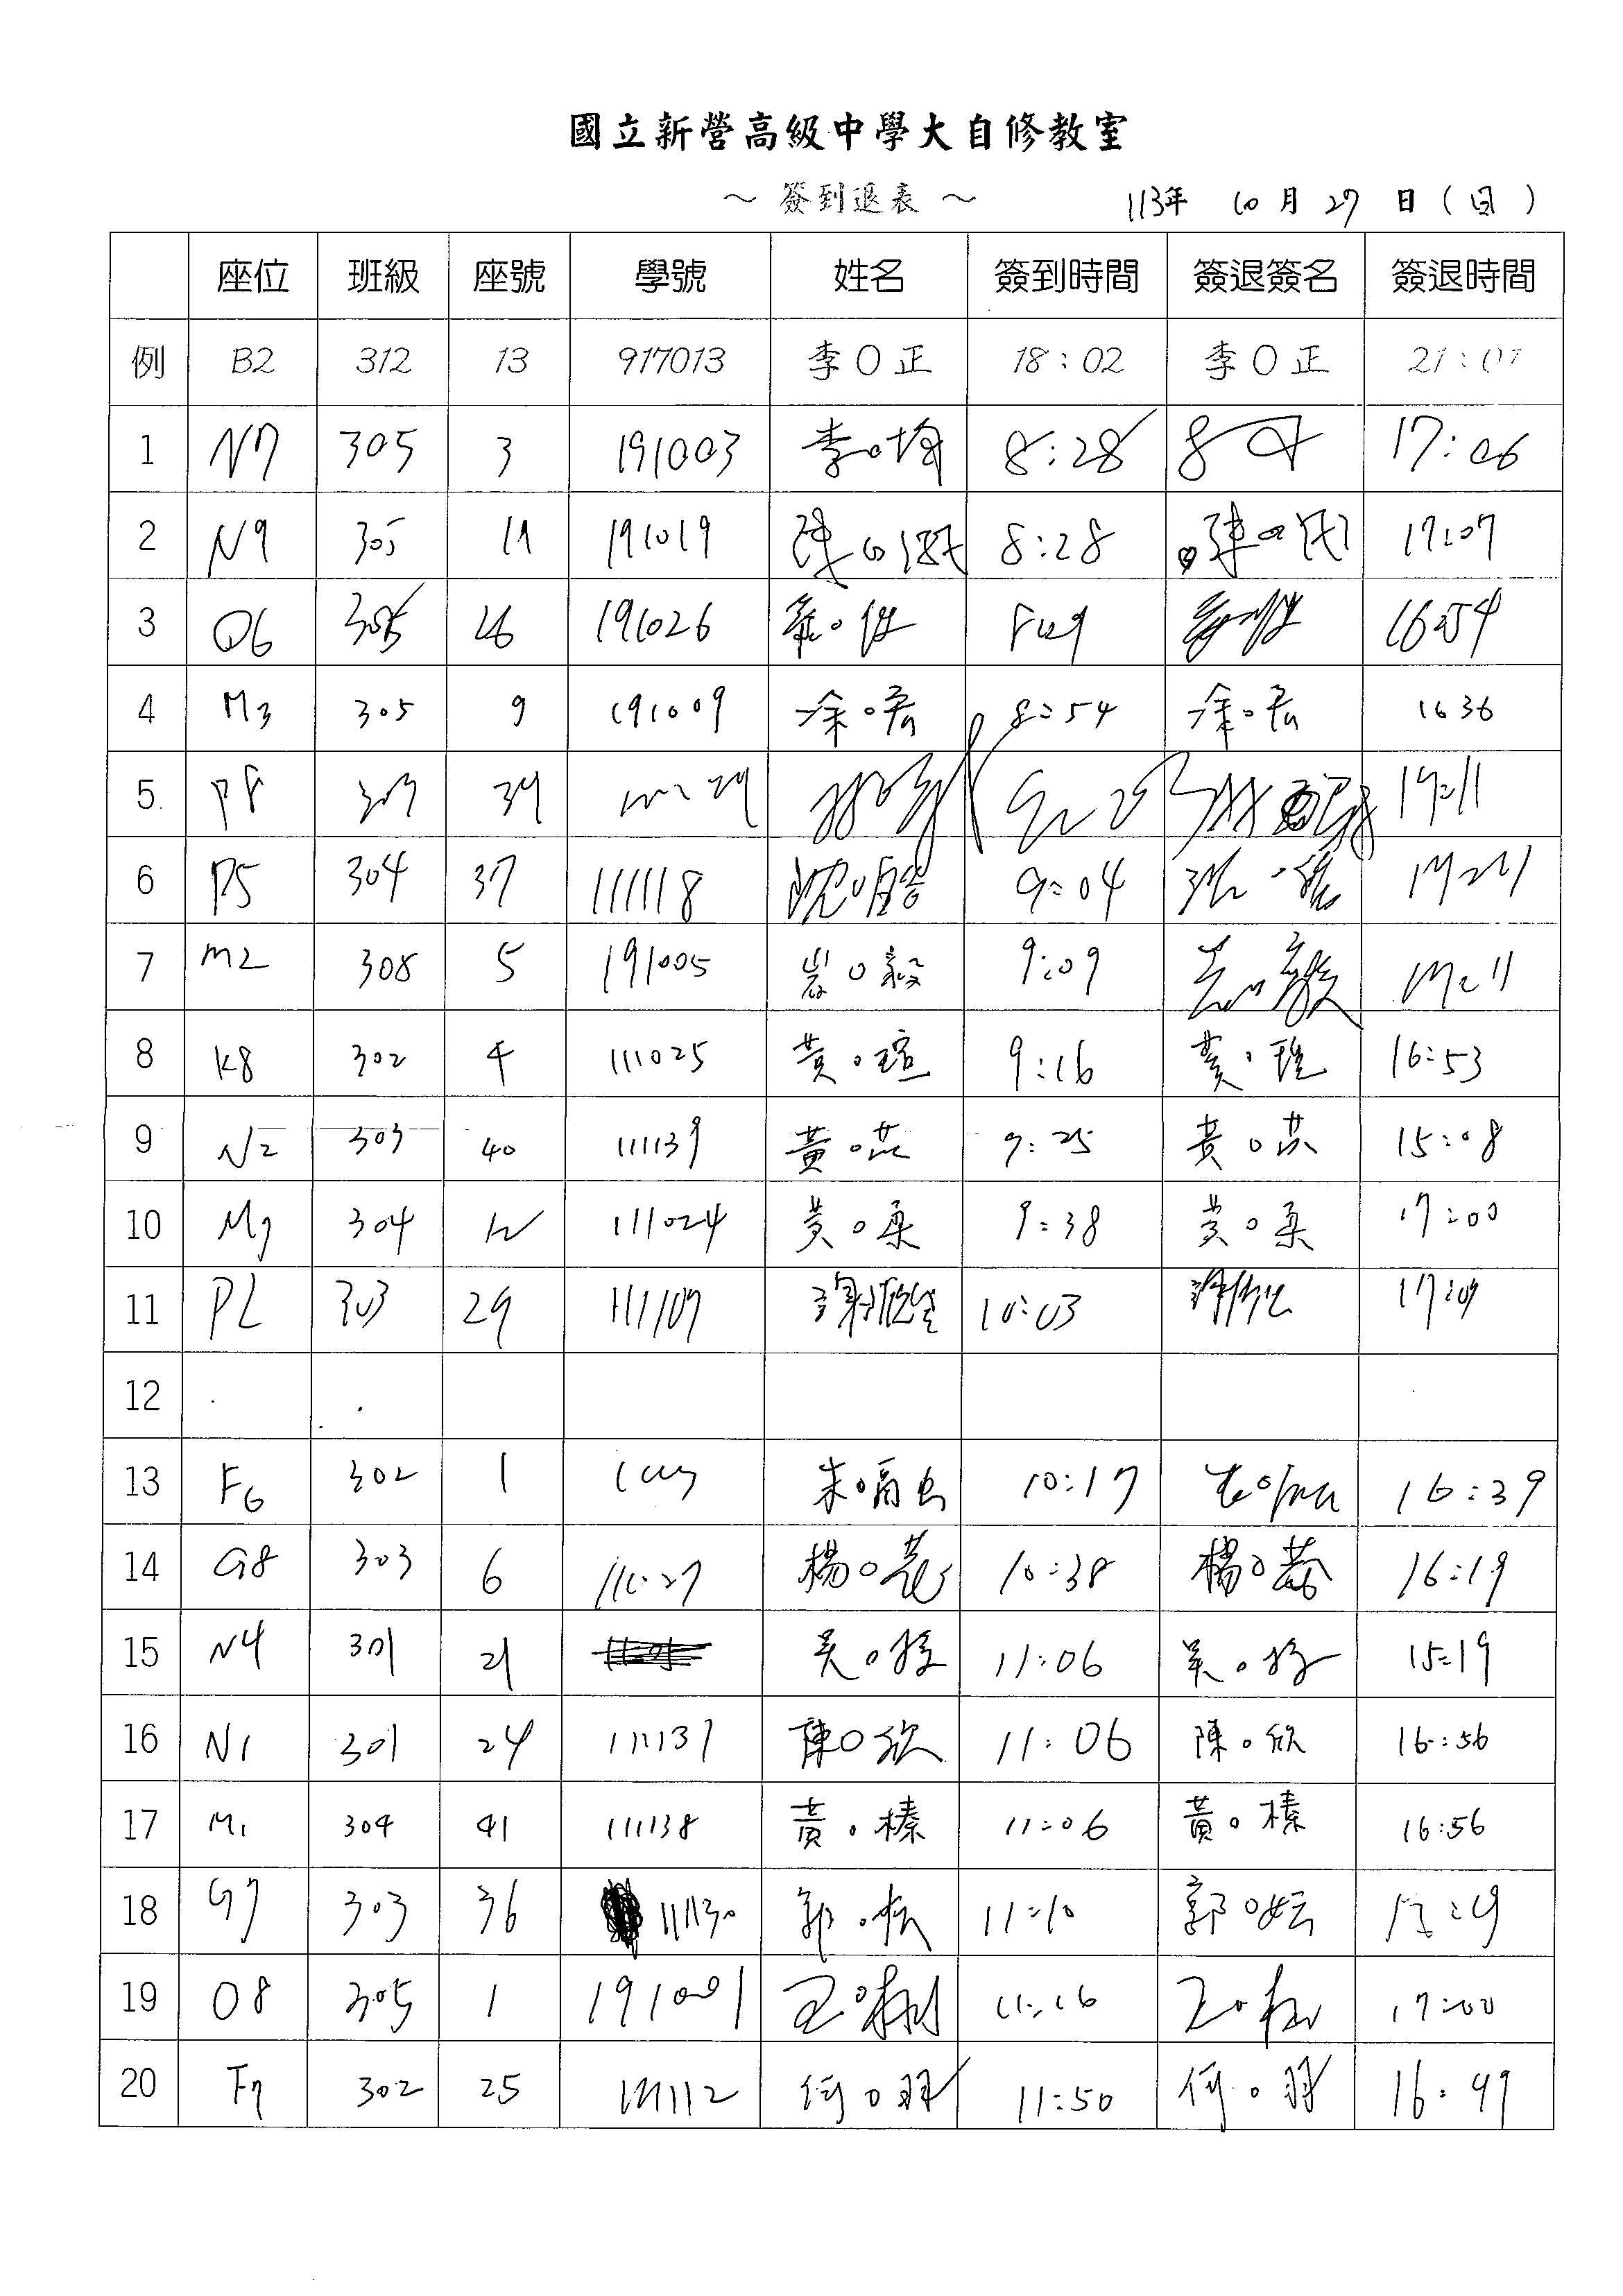 國立新營高級中學大自修教室
～ 簽到退表 ～ 113年 10月 27 日 (日)
座位 班級 座號 學號 姓名 簽到時間 簽退簽名 簽退時間
例 B2 312 13 917013 李O正 18:02 李O正 21:01
1 N7 305 3 191003 李O均 8:28 17:06
2 N9 305 19 191019 陳O 8:28 陳O 17:07
3 O6 305 26 191026 16:54
4 M3 305 9 191009 涂O君 8:54 涂O君 1636
5 P8 17:11
6 P5 304 37 111118 沈O 9:04
7 M2 308 5 191005 O毅 9:09
8 K8 302 4 111025 黃O瑄 9:16 黃O瑄 16:53
9 N2 303 40 111139 黃O芯 9:25 黃O芯 15:08
10 M9 304 12 111024 黃O柔 9:38 黃O柔 17:00
11 PL 303 29 111109 謝 10:03 謝 17:09
12
13 F6 302 1 朱O 10:17 16:39
14 G8 303 6 111027 楊O 10:38 楊O 16:19
15 N4 301 21 吳O 11:06 吳O 15:19
16 N1 301 24 111131 陳O欣 11:06 陳O欣 16:56
17 M1 304 41 111138 黃O榛 11:06 黃O榛 16:56
18 G7 303 36 111130 郭O妘 11:10 郭O妘
19 O8 305 1 191001 王O 11:16 王O 17:00
20 F7 302 25 111112 何O羽 11:50 何O羽 16:49